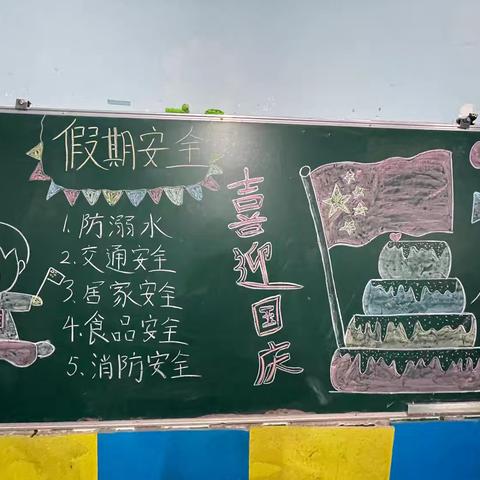 假期安全
1.防溺水
2.交通安全
3.居家安全
4.食品安全
5.消防安全
喜迎国庆